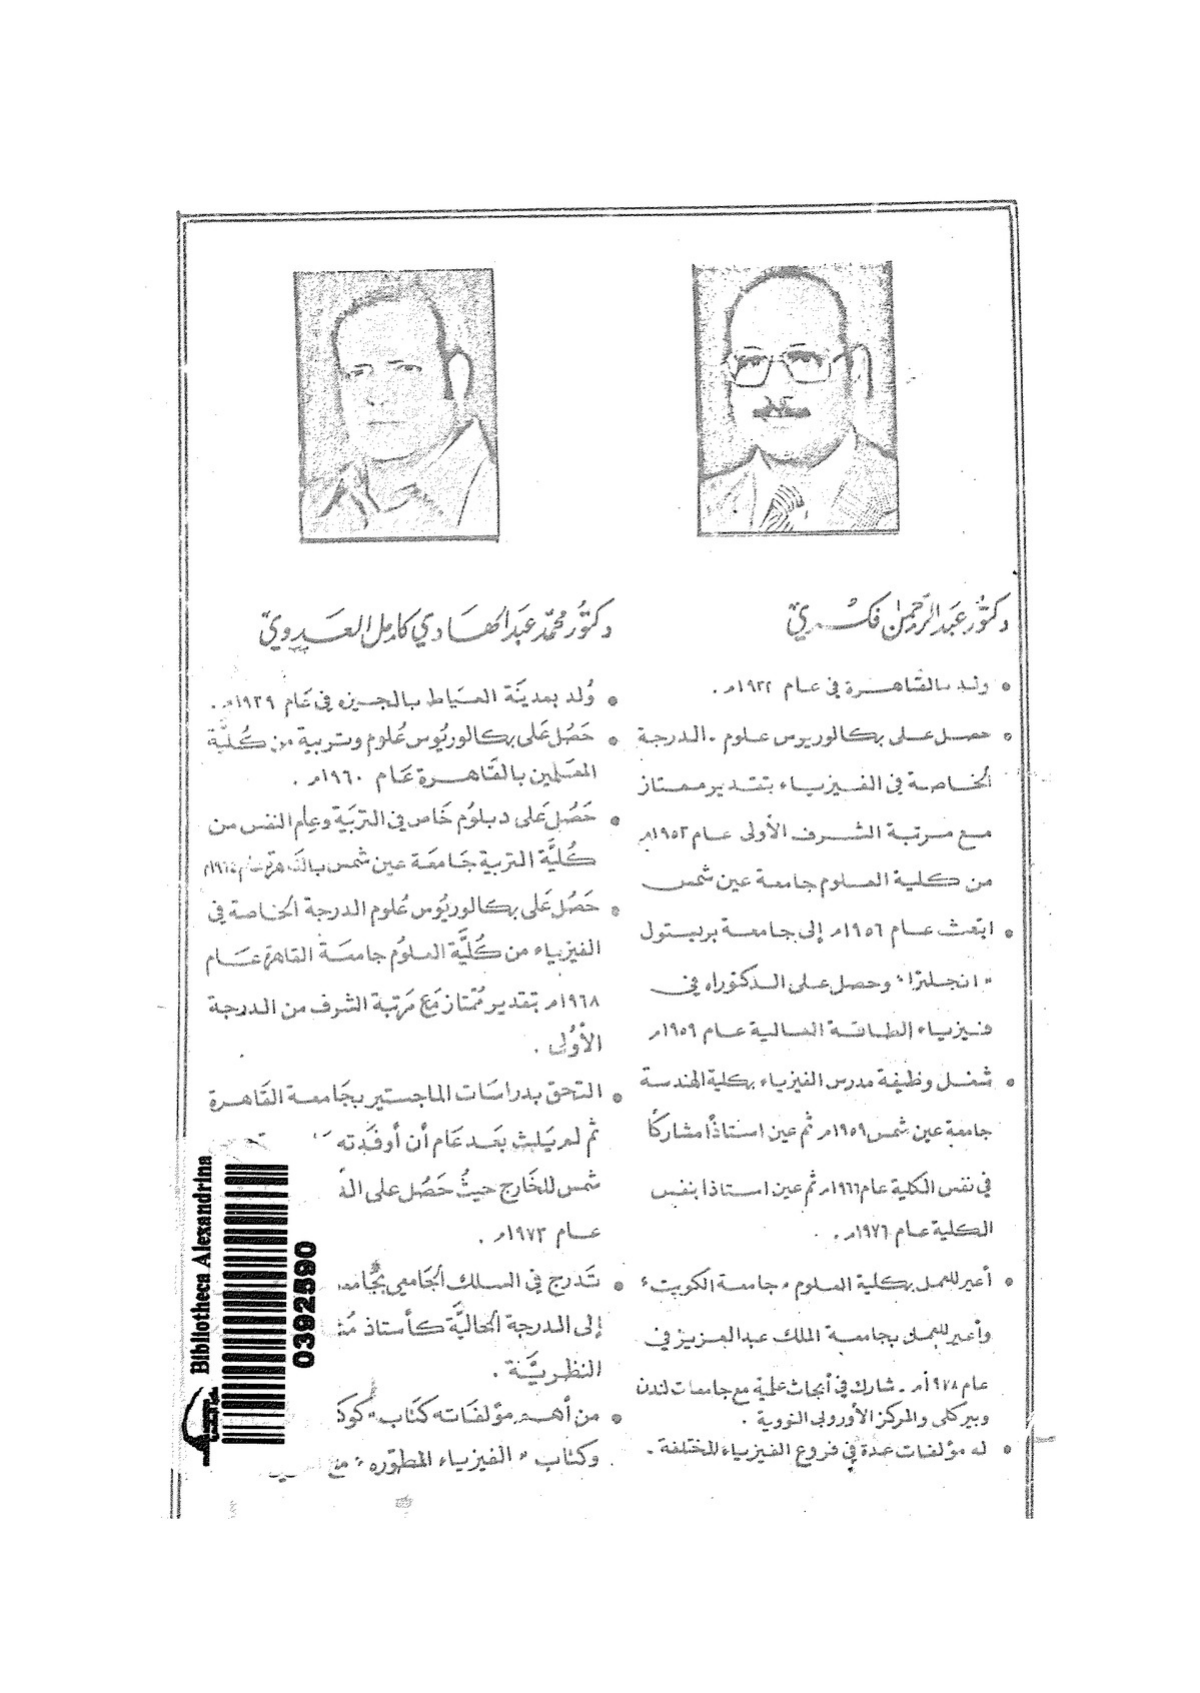 دكتور عبد الرحمن فكري
• ولد بالقاهرة في عام ١٩٣٢م .
• حصل على بكالوريوس علوم - الدرجة
الخاصة في الفيزياء بتقدير ممتاز
مع مرتبة الشرف الأولى عام ١٩٥٢م
من كلية العلوم جامعة عين شمس
• ابتعث عام ١٩٥٦م إلى جامعة بريستول
"انجلترا" وحصل على الدكتوراه في
فيزياء الطاقة العالية عام ١٩٥٩م
• شغل وظيفة مدرس الفيزياء بكلية الهندسة
جامعة عين شمس ١٩٥٩م ثم عين استاذًا مشاركًا
في نفس الكلية عام ١٩٦٦م ثم عين استاذا بنفس
الكلية عام ١٩٧٦م .
• أعير للعمل بكلية العلوم " جامعة الكويت "
وأعير للعمل بجامعة الملك عبد العزيز في
عام ١٩٧٨م - شارك في أبحاث علمية مع جامعات لندن
وبيركلى والمركز الأوروبي النووية .
• له مؤلفات عدة في فروع الفيزياء المختلفة .
دكتور محمد عبد الهادي كامل العدوي
• وُلد بمدينة العياط بالجيزه في عَام ١٩٣٩م .
• حَصُل عَلى بكالوريُوس عُلوم وتربية من كُليَّة
المعَلمين بالقَاهرة عَام ١٩٦٠م .
• حَصُل عَلى دبلوُم خَاص في التربَية وعِلم النفس من
كُليَّة التربية جَامعَة عين شمس بالقاهرة عام
• حَصُل عَلى بكالوريُوس عُلوم الدرجة الخاصة في
الفيزياء من كُليَّة العلوُم جامعَة القاهرة عَام
١٩٦٨م بتقدير مُمتاز مَع مَرتبة الشرف من الدرجة
الأوُلى .
• التحق بدراسَات الماجستير بجَامعة القَاهرة
ثم لم يَلبث بعَد عَام أن أوفَدته
شمس للخَارج حيثُ حَصُل على الد
عام ١٩٧٣م .
• تَدرج في السلك الجَامعي بجَامعـ
إلى الدرجة الحاليَّة كأستاذ مُشـ
النظريَّة .
• من أهم مؤلفَاته كتَاب "كوكـ
وكتاب " الفيزياء المطوّره " مع
Bibliotheca Alexandrina
0392590